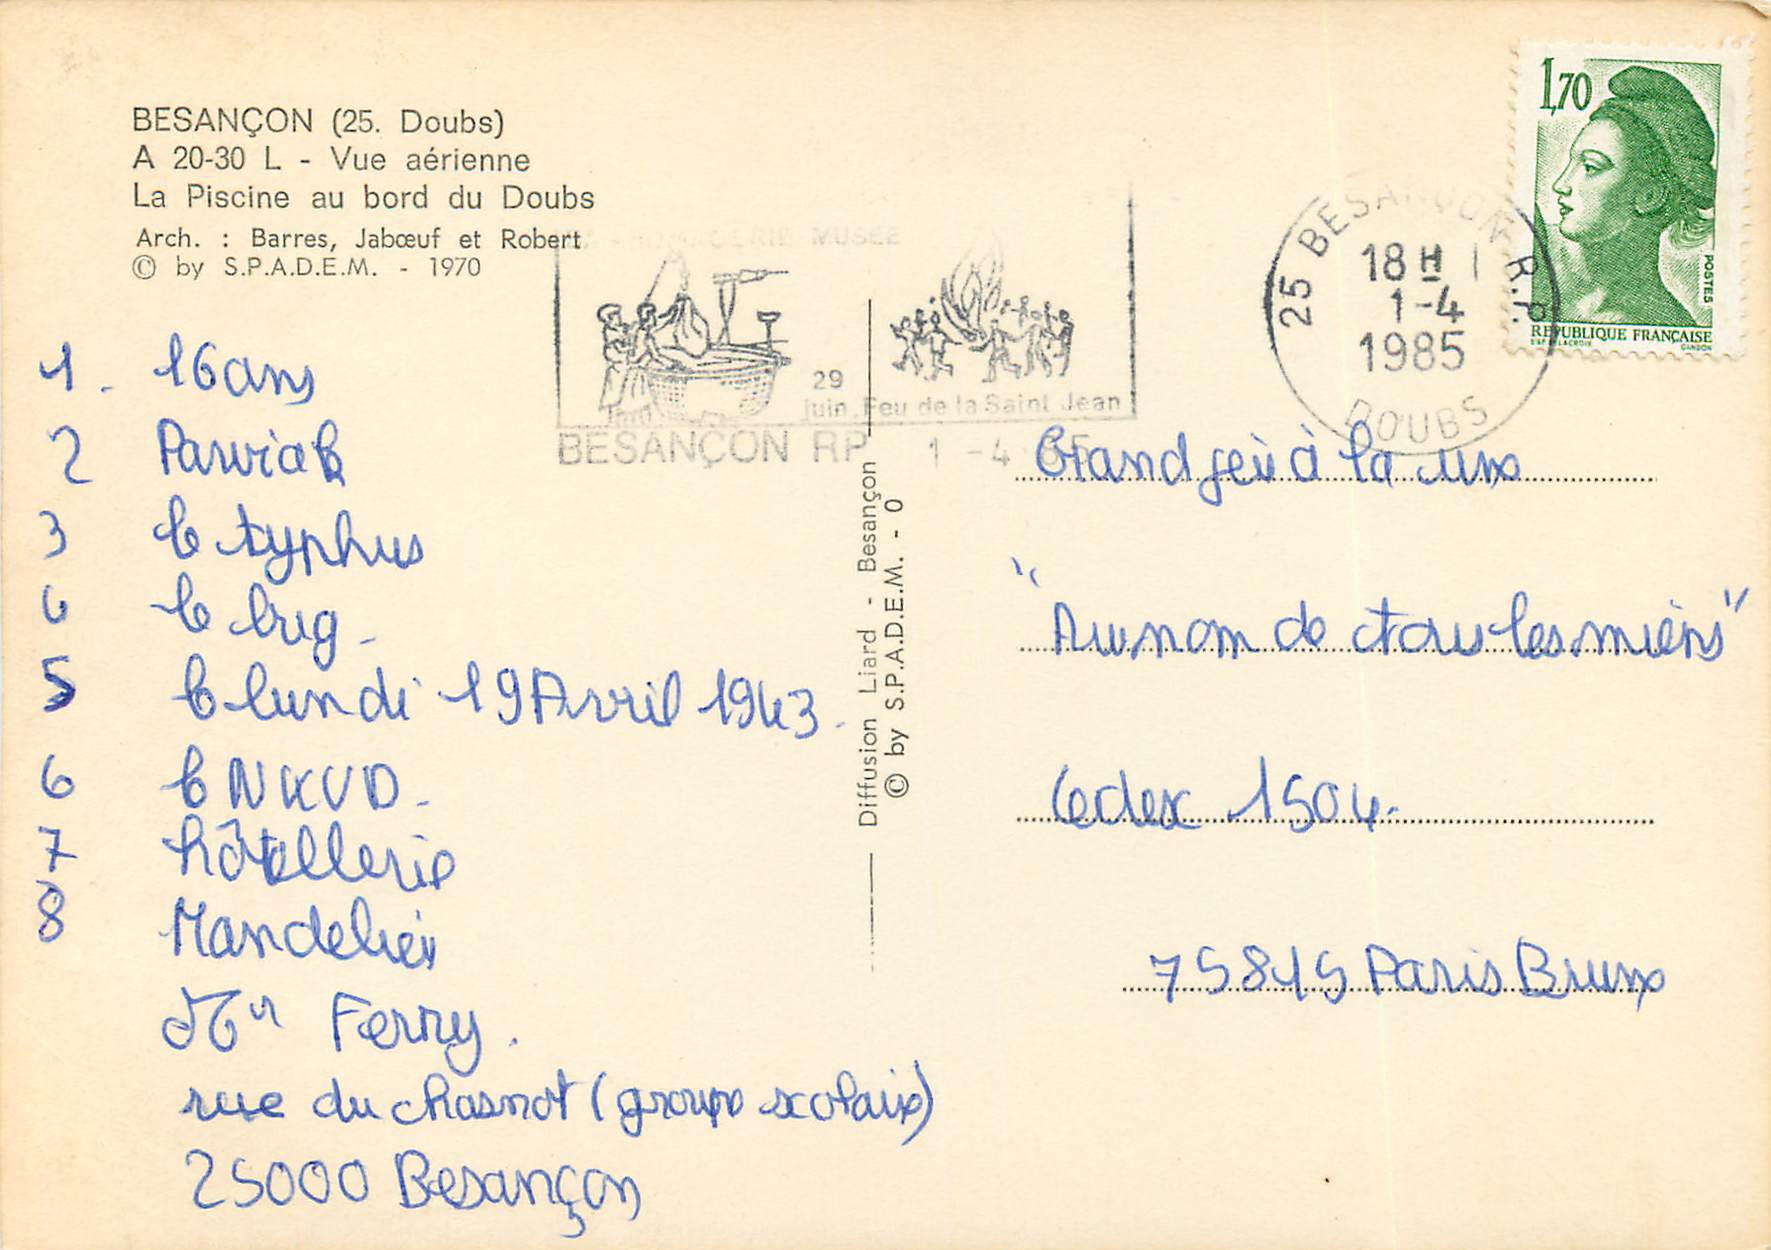 BESANÇON (25. Doubs)
A 20-30 L - Vue aérienne
La Piscine au bord du Doubs
Arch. : Barres, Jabœuf et Robert
© by S.P.A.D.E.M. - 1970
MUSEE
29
juin Feu de la Saint Jean
BESANÇON RP 1 - 4 85
25 BESANÇON R.P.
18 H
1-4
1985
DOUBS
1,70
POSTES
REPUBLIQUE FRANÇAISE
GANDON
1. 16 ans
2 Pawiak
3 le typhus
4 le bug.
5 le lundi 19 Avril 1943.
6 le NKVD.
7 hôtellerie
8 Mandelieu
Mr Ferry.
rue du chasnot (groupe scolaire)
25000 Besançon
Diffusion Liard - Besançon
© by S.P.A.D.E.M. - O
Grand jeu à la une
"Au nom de tous les miens"
Cedex 1504.
75815 Paris Brune